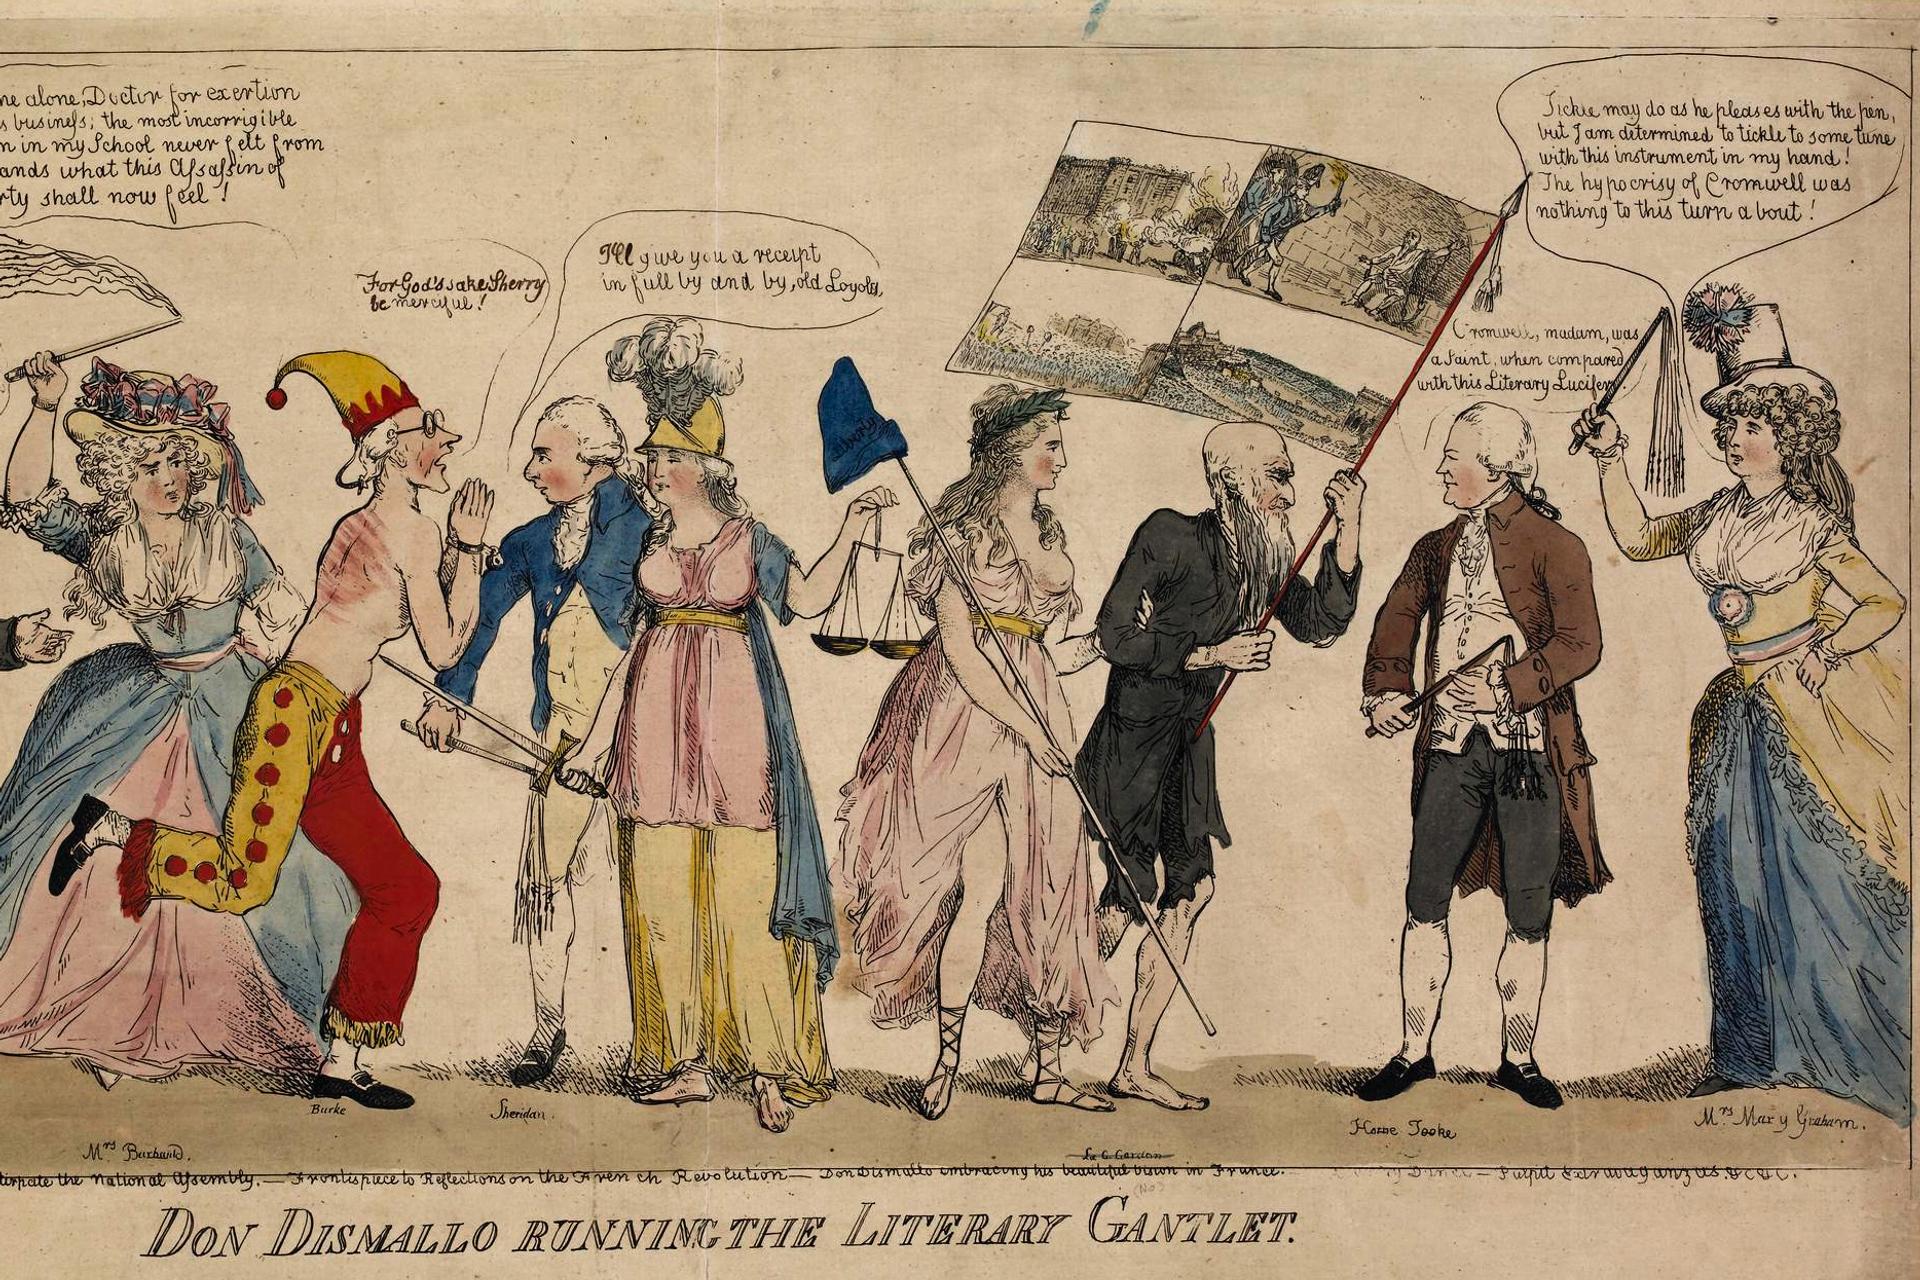 ne alone, Doctor for exertion
s business; the most incorrigible
n in my School never felt from
ands what this Assassin of
rty shall now feel!
For God's sake Sherry
be merciful!
I'll give you a receipt
in full by and by, old Loyola,
Liberty
Tickle may do as he pleases with the pen,
but I am determined to tickle to some tune
with this instrument in my hand!
The hypocrisy of Cromwell was
nothing to this turn about!
Cromwell, madam, was
a Saint, when compared
with this Literary Lucifer.
Burke
Sheridan.
Horne Tooke
Mrs Mary Graham.
Mrs Barbauld.
Ld G. Gordon
tirpate the National Assembly. — Frontispiece to Reflections on the French Revolution — Don Dismallo embracing his beautiful vision in France. — Pulpit Extravaganzas. &c &c.
(No)
DON DISMALLO RUNNING THE LITERARY GANTLET.